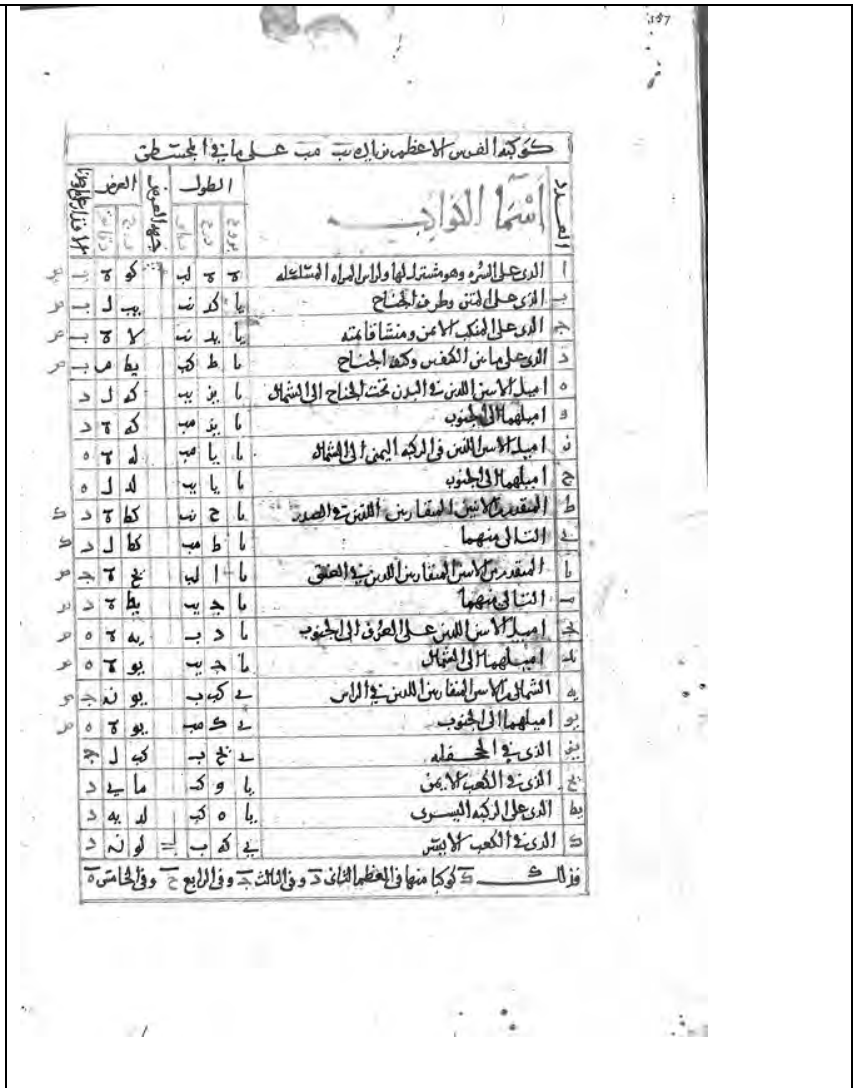 157
كوكبة الفرس الاعظم بزيادة مب على ما في المجسطى
العدد اسما الكواكب الطول جهة العرض العرض الاقدار
بروج درج دقايق درج دقايق
ا الذى على السره وهو مشترك لها ولراس المراه المسلسله ٥ ٥ لب كو ٥
ب الذى على المتن وطرف الجناح يا كد نب يب ل ب
ج الذى على المنكب الايمن ومنشا قايمته يا يد نب لا ٥ ب
د الذى على ما بين الكتفين وكتف الجناح يا ط كب يط م ب
ه اميل الاسن اللذين فى البدن تحت الجناح الى الشمال يا يز يب كه ل د
و اميلهما الى الجنوب يا يز مب كه ٥ د
ز اميل الاسن اللذين فى الركبه اليمنى الى الشمال يا يا مب له ٥ ه
ح اميلهما الى الجنوب يا يا يب لد ل ه
ط المتقدم من الاثنين المتقاربين اللذين فى الصدر يا ح نب كط ٥ د
ى التالى منهما يا ط مب كط ل د
يا المتقدم من الاسن المتقاربين اللذين فى العنق يا ا لب يح ٥ ج
يب التالى منهما يا ج يب يط ٥ د
يج اميل الاسن اللذين على العرف الى الجنوب يا د ب يه ٥ ه
يد اميلهما الى الشمال يا ج يب يو ٥ ه
يه الشمالى من الاسن المتقاربين اللذين فى الراس ى كب ب يو ن ج
يو اميلهما الى الجنوب ى ك مب يو ٥ ه
يز الذى فى الجحفله ى يح ب كب ل ج
يح الذى فى الكعب الايمن يا و كب ما ى د
يط الذى على الركبه اليسرى يا ه كب لد يه د
ك الذى فى الكعب الايسر ى كه ب لو ن د
فذلك ك كوكبا منها فى العظم الثانى د وفى الثالث ج وفى الرابع ح وفى الخامس ه